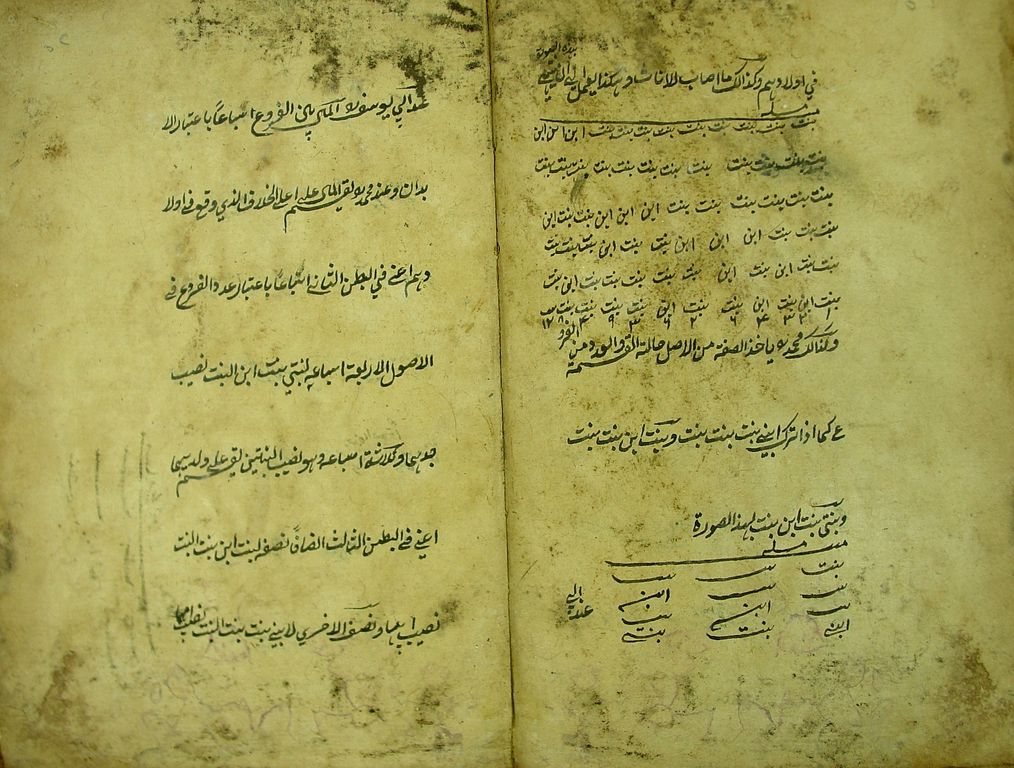 بهذه الصورة
في اولادهم وكذلك ما اصاب الاناث وهكذا يعمل الى ان ينتهي
مسئلة
بنت بنت بنت بنت بنت بنت بنت بنت بنت ابن ابن ابن
بنت بنت بنت بنت بنت بنت بنت بنت بنت بنت بنت بنت
بنت بنت بنت بنت بنت بنت ابن ابن ابن بنت بنت ابن
بنت بنت بنت ابن ابن ابن بنت بنت ابن بنت بنت بنت
بنت بنت ابن بنت ابن بنت بنت بنت بنت ابن بنت
بنت ابن بنت ابن بنت بنت ابن بنت بنت بنت بنت بنت
وكذلك محمد ياخذ الصفة من الاصل حالة القسمة والعدد من الفرو
ع كما اذا ترك ابني بنت بنت بنت وبنت ابن بنت بنت
وبنتي بنت ابن بنت بهذه الصورة
مسئلة
بنت بنت بنت
بنت بنت ابن
بنت ابن بنت
ابني بنت بنتي
عند ابي
عند ابي يوسف المال بين الفروع اسباعا باعتبار الا
بدان وعند محمد يقسم المال على اعلى الخلاف الذي وقع في اولا
وهم اعني في البطن الثاني اسباعا باعتبار عدد الفروع في
الاصول الاربعة اسباعه لبنتي بنت ابن البنت نصيب
جدهما وثلاثة اسباعه وهو نصيب البنتين يقسم على ولديهما
اعني في البطن الثالث انصافا نصفه لبنت ابن بنت البنت
نصيب ابيها ونصفه الاخرى لابني بنت بنت البنت نصيب امهما